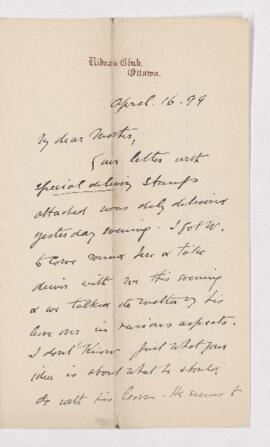 Rideau Club,
Ottawa.
April. 16. 99
My dear
Your letter with
special delivery stamps
attached was duly delivered
yesterday evening. I got W.
to come round here & take
dinner with me this evening
& we talked the matter of his
in various aspects.
I don't know just what your
idea is about what he should
do with his. He seems to